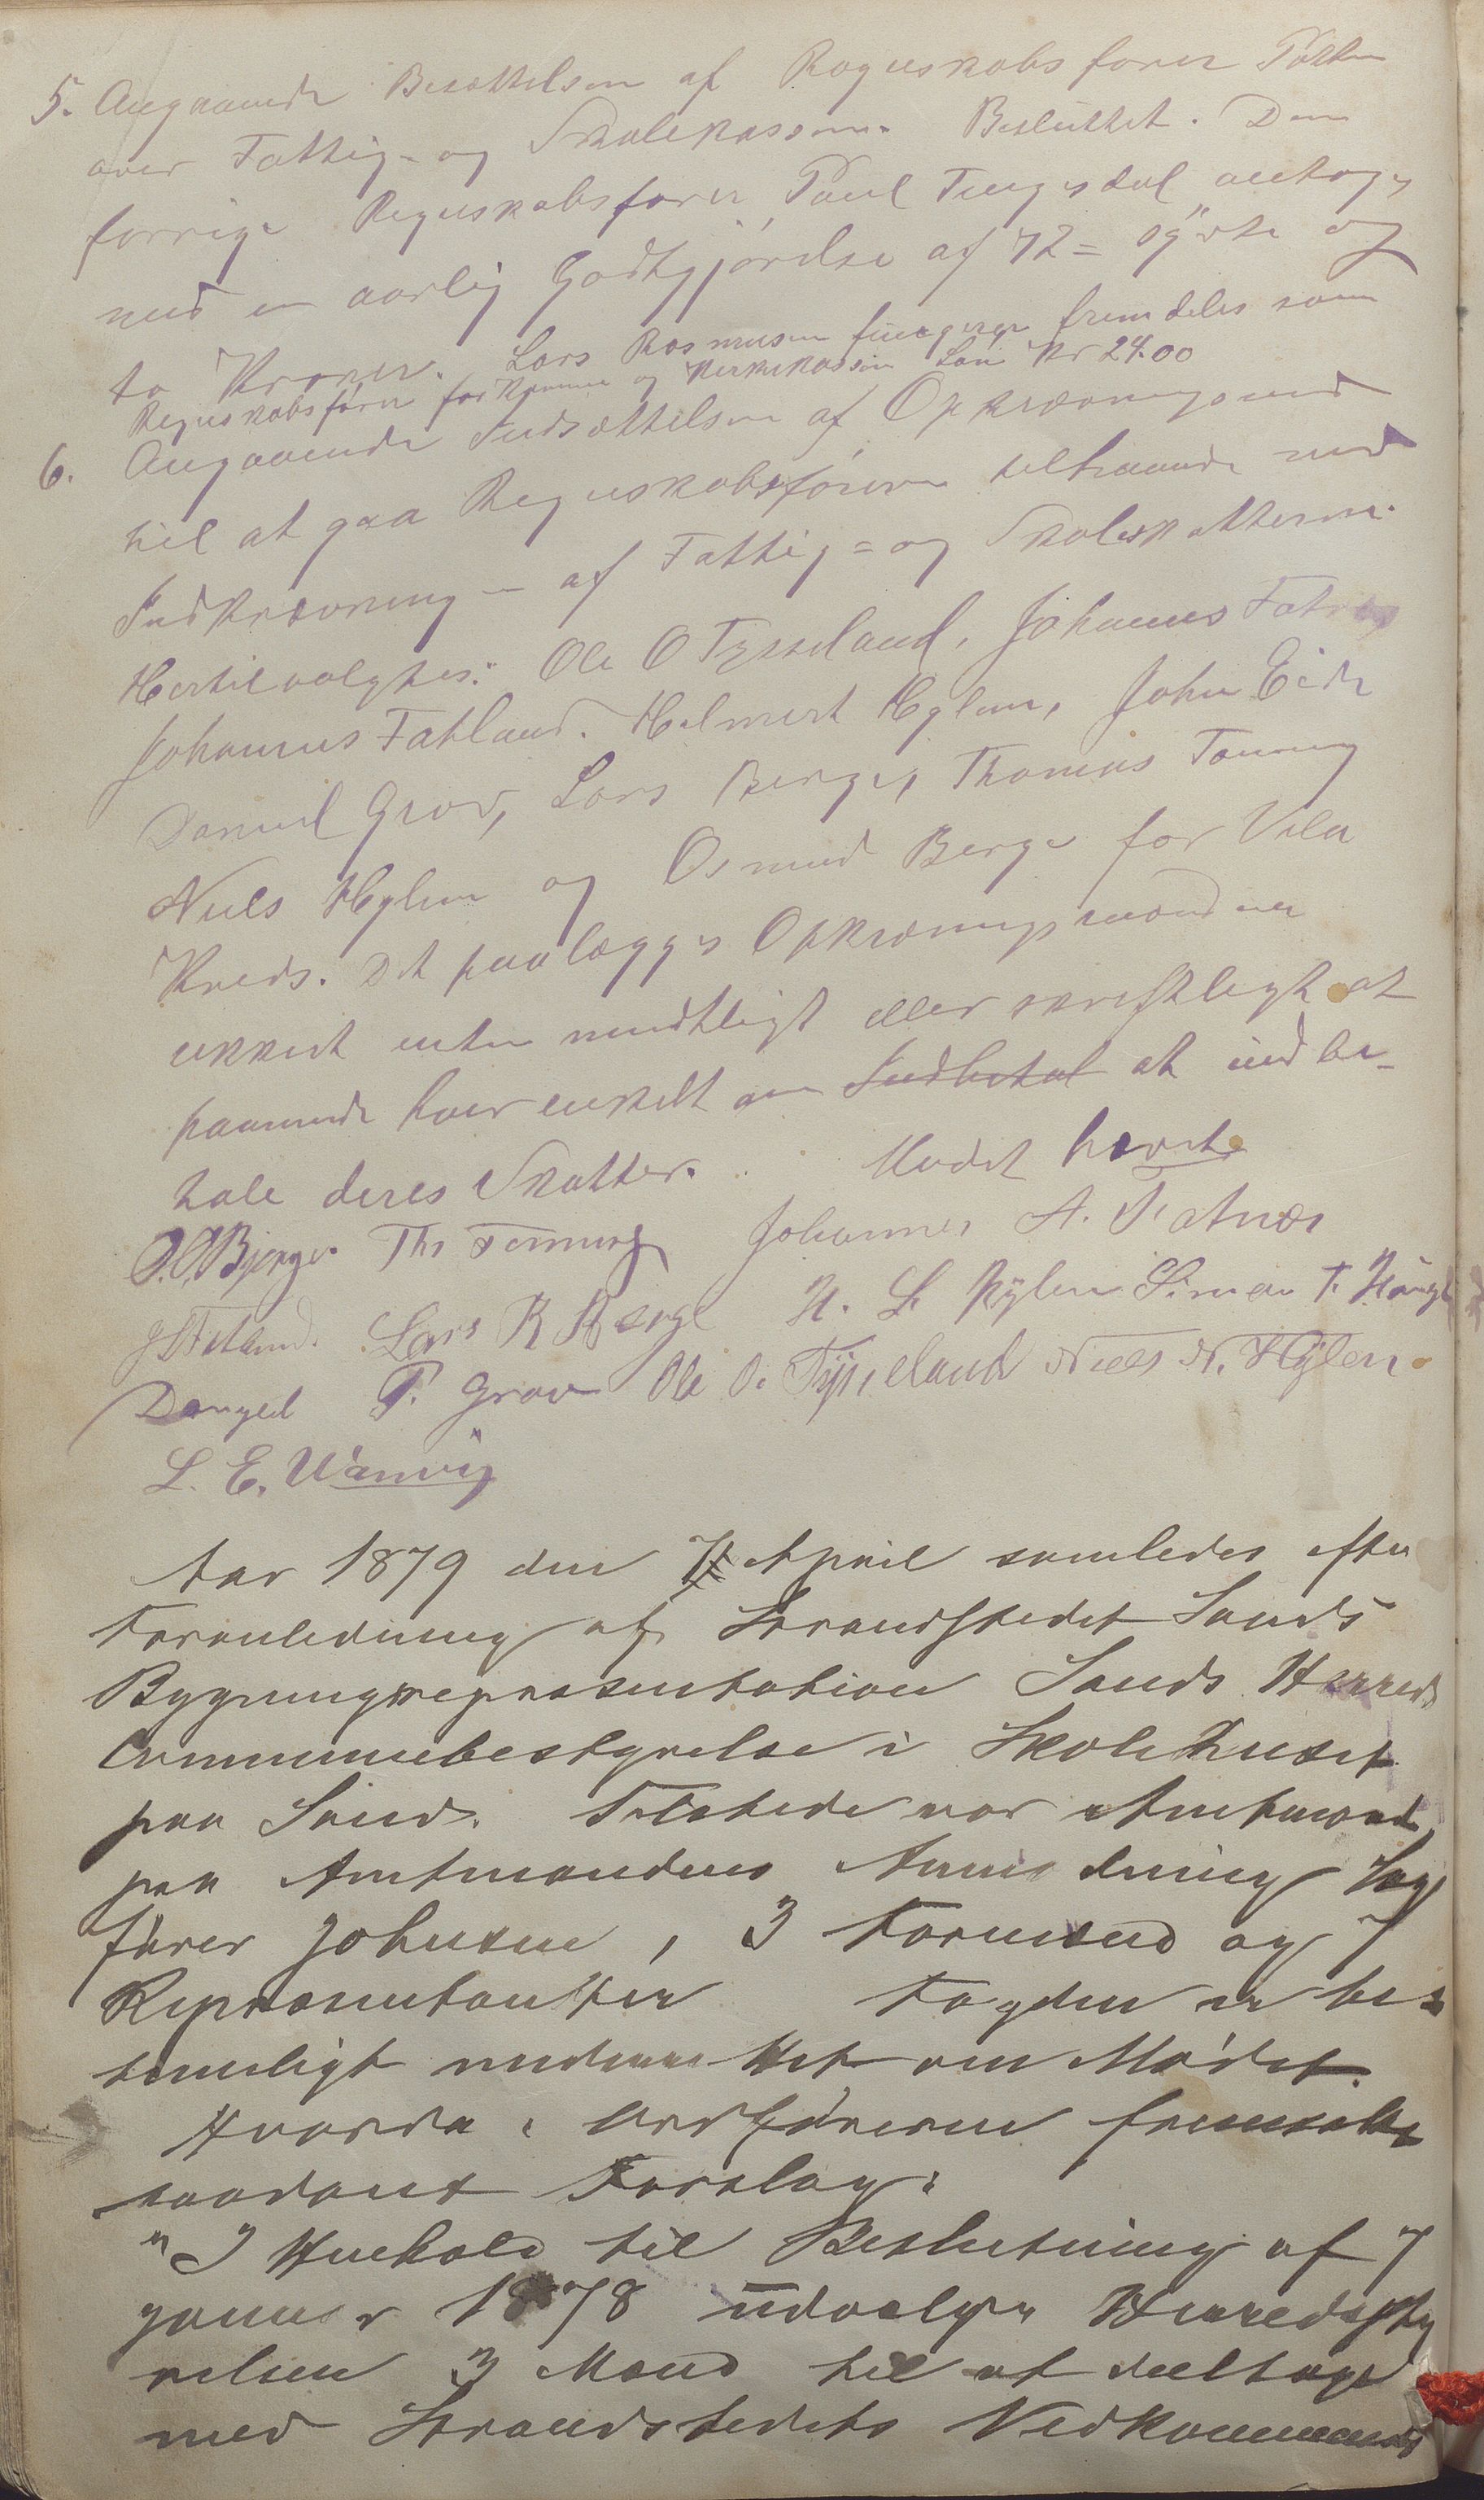 5. Angaaende Besættelsen af Regnskabsfører Posten
over Fattig- og Skolekassen. Besluttet. Den
forrige Regnskabsfører Poul Tengesdal antoges
med en aarlig Godtgjørelse af 72 = sytti og
to Kroner. Lars Rasmusen fungerer fremdeles som
Regnskabsfører for Komune og Kirkekassen Løn Kr 24.00
6. Angaaende Indsættelsen af Opkrævningsmænd
til at gaa Regnskabsføreren tilhaande med
Indkrævning - af Fattig = og Skoleskatterne.
Hertil valgtes: Ole O Tysseland, Johannes Fatnes
Johannes Fatland. Helmert Hylen, John Eide
Daniel Grov, Lars Berge, Thomas Tonning
Niels Hylen og Osmund Berge for Vela
Kreds. Det paalægges Opkrævningsmændene
ukkert enten mundtligt eller skriftligt at
paaminde hver enkelt om Indbetal at indbe-
tale deres Skatter. Mødet hævet
O. O. Bjerge. Ths Tonning Johannes A. Fatnes
J Fatland. Lars R Berge H. L Hylen Simon T. Haugh
Danyel P. Grov Ole O. Tysseland Niels N. Hylen.
L. E. Wanvig
Aar 1879 den 7 April samledes efter
Foranledning af Strandstedet Sands
Bygningsrepræsentation Sands Herreds
Communebestyrelse i Skolehuset
paa Sand. Tilstede var Amtmand,
paa Amtmandens Anmodning Sag
fører Johnsen, 3 Formænd og 7
Repræsentanter Fogden er be
timeligt underrettet om Mødet.
Hvorda Ordføreren fremsatte
saadant Forslag:
"I Henhold til Beslutning af 7
januar 1878 udvælger Herredssty
relsen 3 Mænd til at deeltage
med Strandstedets Vedkommende